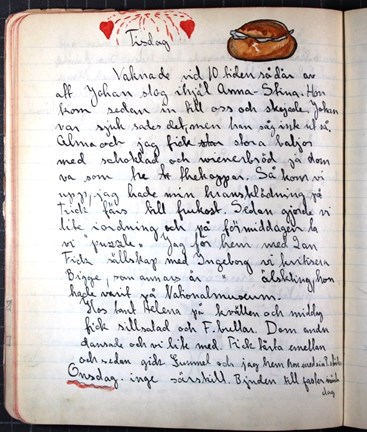 Tisdag
Vaknade vid 10 tiden sådär av
att Johan slog ihjäl Anna-Stina. Hon
kom sedan in till oss och skejade, Johan
var sjuk sades det, men han såg inte ut så.
Alma och jag fick stora baljor
med schoklad och wienerbröd på dom
va som tre te thekoppar. Så kom vi
upp, jag hade min klädning på
Fick färs till frukost. Sedan gjorde vi
lite i ordning och på förmiddagen la
vi puzzle. Jag för hem med Dan
Fick sällskap med Ingeborg vi kritisera
Bigge, som annars är älskling, hon
hade varit på Nationalmuseum.
Hos tant Helena på kvällen och middag
fick sillsalad och F. bullar. Dom andra
dansade och vi lite med. Fick tårta emellan
och sedan gick Gummel och jag hem
Onsdag. inge särskilt. Bjuden till faster
dag